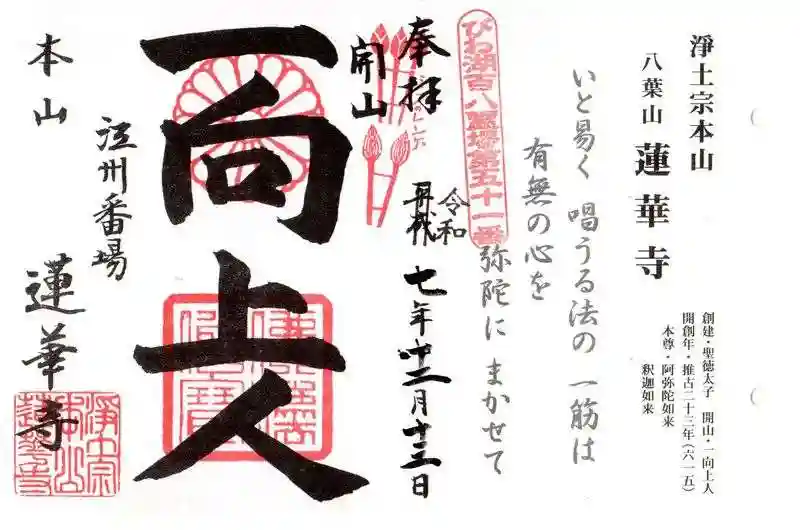 淨土宗本山
八葉山 蓮華寺
創建・聖徳太子 開山・一向上人
開創年・推古二十三年(六一五)
本尊・阿弥陀如来
釈迦如来
いと易く 唱うる法の 一筋は
有無の心を
弥陀に まかせて
びわ湖百八霊場第五十一番
奉拝
開山
令和
七年十二月十三日
一向上人
江州番場
本山
蓮華寺
淨土宗
本山
蓮華寺